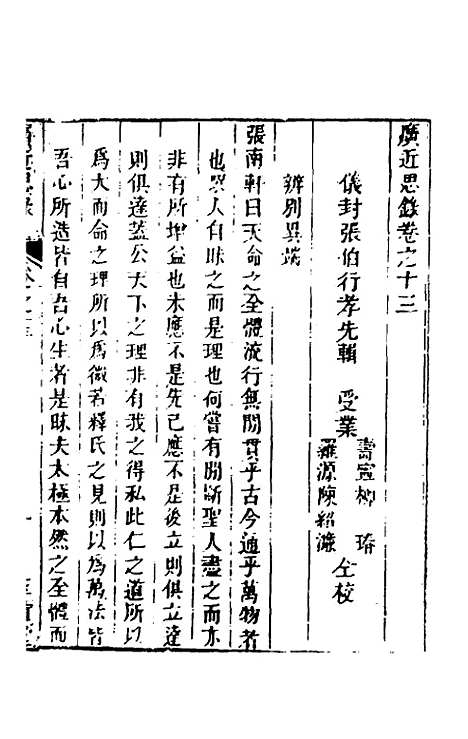 廣近思錄卷之十三
儀封張伯行孝先輯　受業
壽寧柳　瑃
羅源陳紹濂
仝校
辨別異端
張南軒曰天命之全體流行無間貫乎古今通乎萬物者
也眾人自昧之而是理也何嘗有間斷聖人盡之而亦
非有所增益也未應不是先已應不是後立則俱立達
則俱達蓋公天下之理非有我之得私此仁之道所以
爲大而命之理所以爲微若釋氏之見則以爲萬法皆
吾心所造皆自吾心生者是昧夫太極本然之全體而